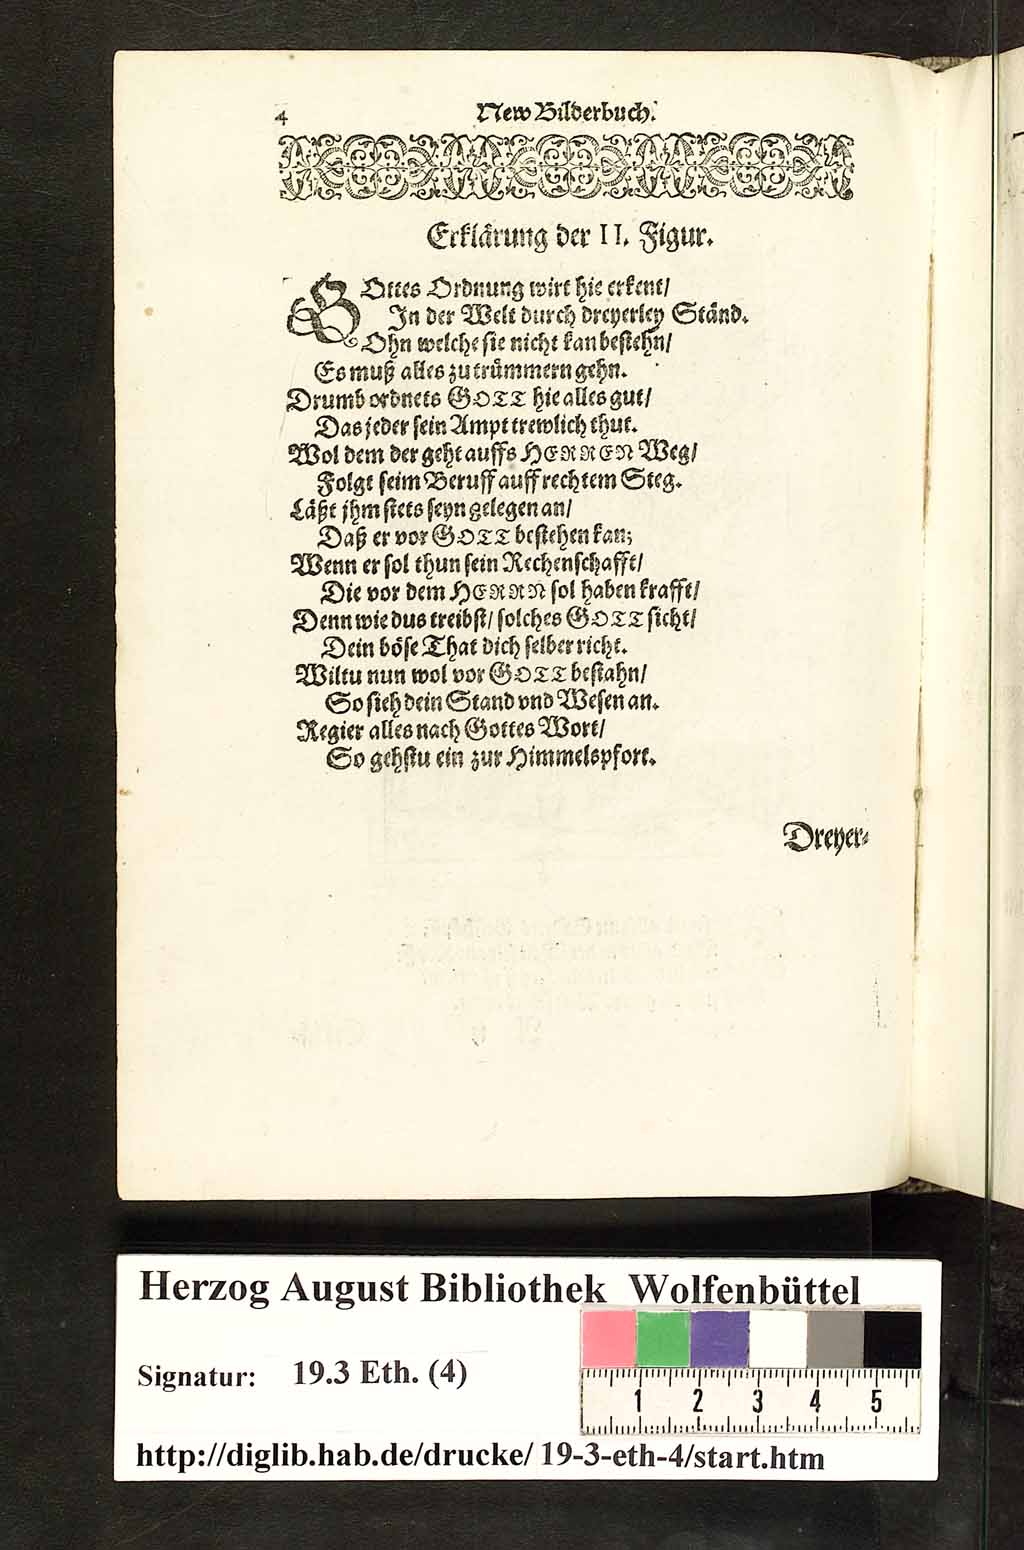 4 New Bilderbuch.
Erklärung der II. Figur.
GOttes Ordnung wirt hie erkent/
In der Welt durch dreyerley Ständ.
Ohn welche sie nicht kan bestehn/
Es muß alles zu trümmern gehn.
Drumb ordnets GOTT hie alles gut/
Das jeder sein Ampt trewlich thut.
Wol dem der geht auffs HERREN Weg/
Folgt seim Beruff auff rechtem Steg.
Läßt jhm stets seyn gelegen an/
Daß er vor GOTT bestehen kan;
Wenn er sol thun sein Rechenschafft/
Die vor dem HERRN sol haben krafft/
Denn wie dus treibst/ solches GOTT sicht/
Dein böse That dich selber richt.
Wiltu nun wol vor GOTT bestahn/
So sieh dein Stand vnd Wesen an.
Regier alles nach Gottes Wort/
So gehstu ein zur Himmelspfort.
Dreyer-
Herzog August Bibliothek Wolfenbüttel
Signatur: 19.3 Eth. (4)
1 2 3 4 5
http://diglib.hab.de/drucke/19-3-eth-4/start.htm